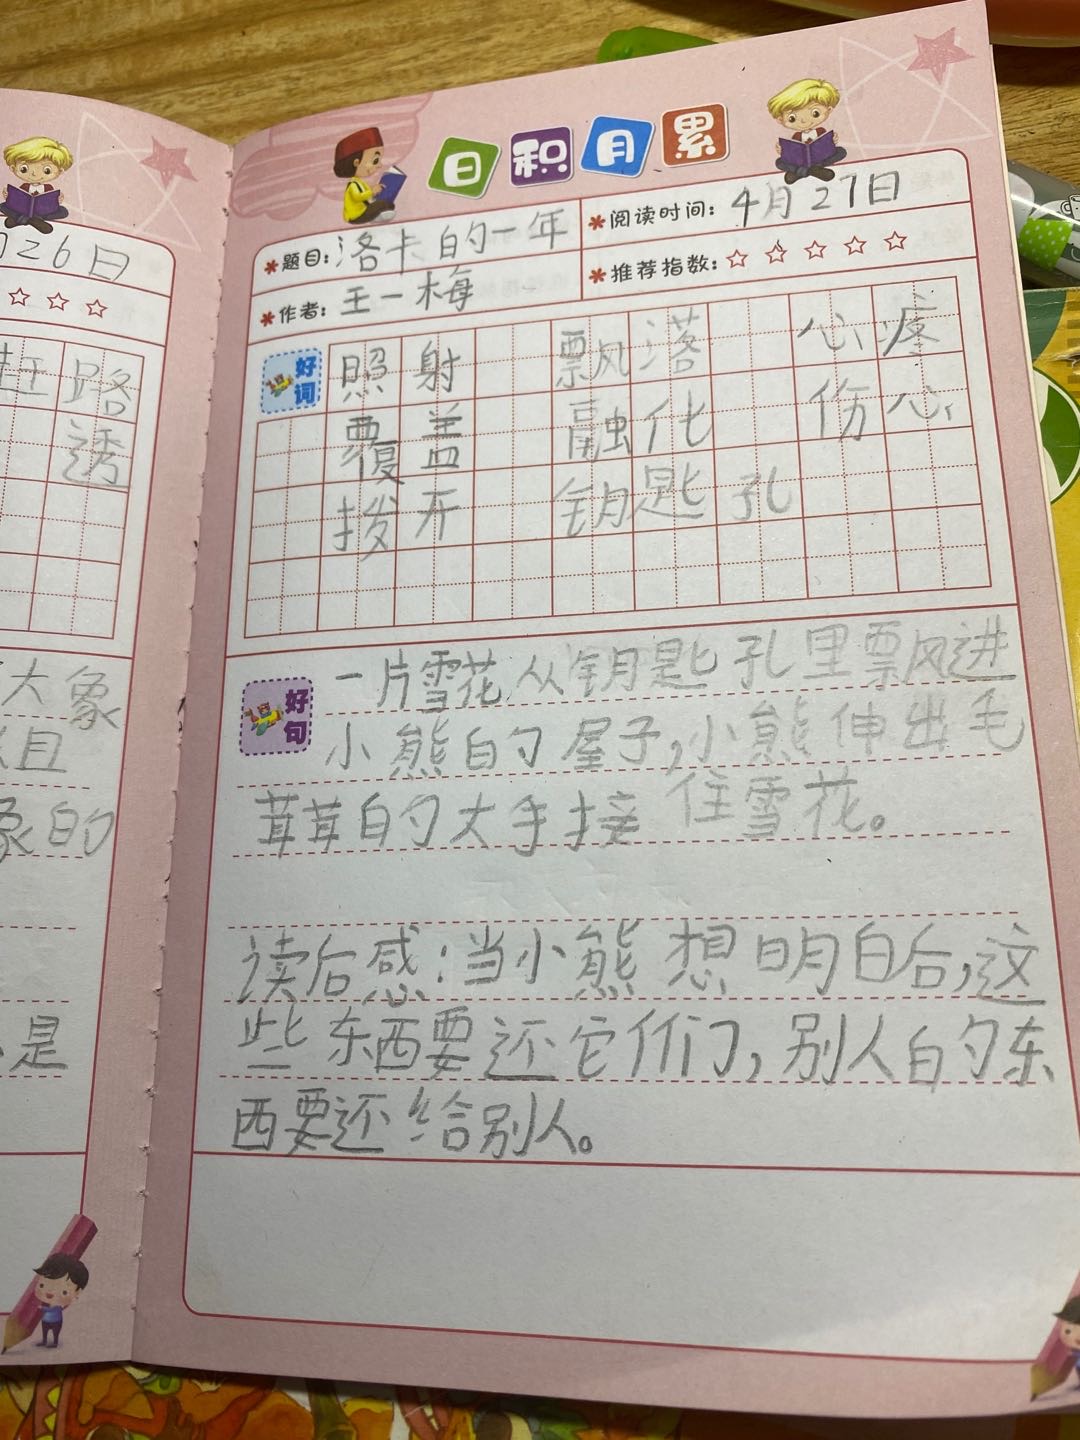 26日
赶路
透
大象
且
象的
是
日积月累
题目：洛卡的一年
阅读时间：4月27日
作者：王一梅
推荐指数：☆☆☆☆☆
好词
照射 飘落 心疼
覆盖 融化 伤心
拨开 钥匙孔
好句
一片雪花从钥匙孔里飘进
小熊的屋子，小熊伸出毛
茸茸的大手接住雪花。
读后感：当小熊想明白后，这
些东西要还它们，别人的东
西要还给别人。